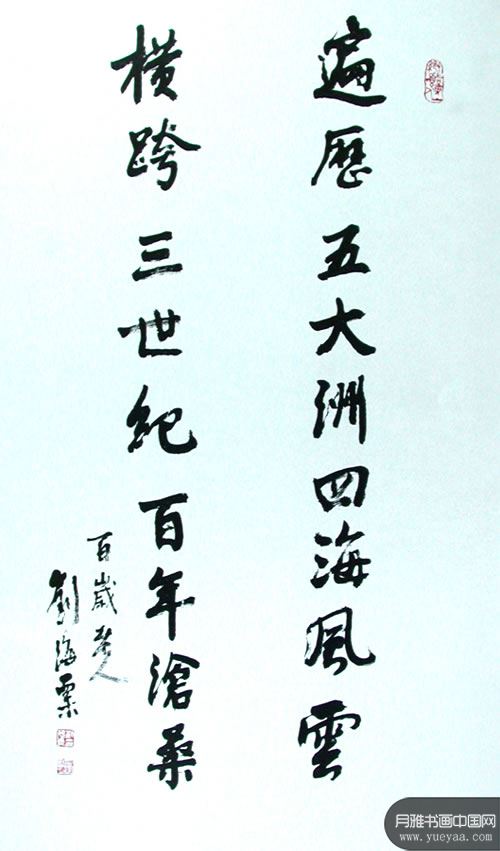 遍歷五大洲四海風雲
橫跨三世紀百年滄桑
百歲老人
劉海粟
月雅书画中国网
www.yueyaa.com